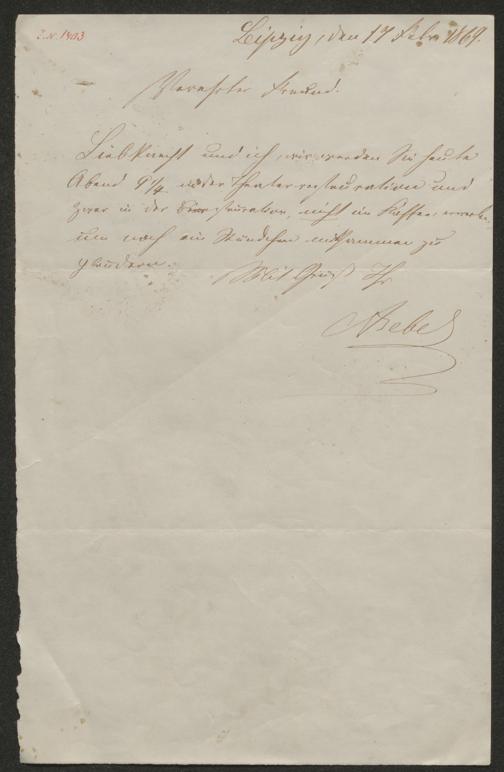 I.N. 1403
Leipzig, den 17 Febr. 1869.
Verehrter Freund.
Liebknecht und ich, wir werden Sie heute
Abend 9 1/4 in der Theaterrestauration und
zwar in der Restauration, nicht im Kaffee erwarten
um noch ein Stündchen mitsammen zu
plaudern.
Mit Gruß Ihr
ABebel